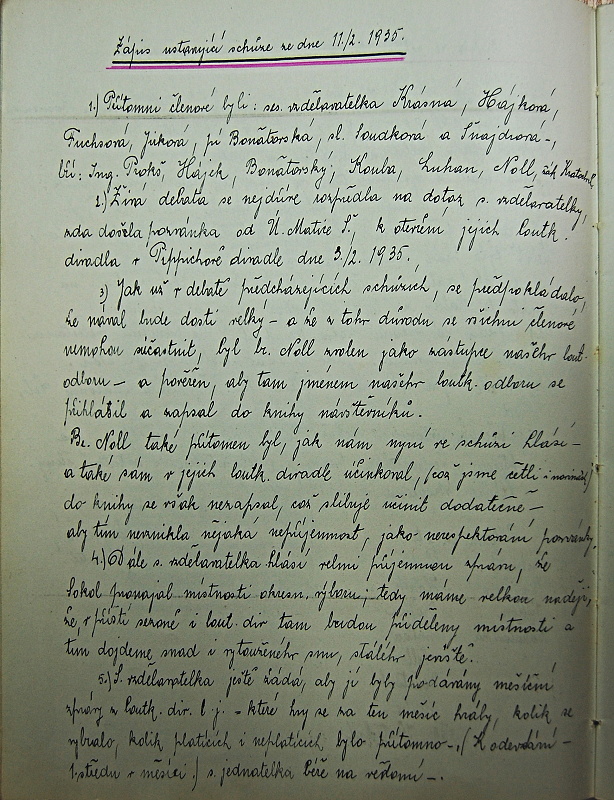 Zápis ustavující schůze ze dne 11./2. 1935.
1.) Přítomni členové byli: ses. vzdělavatelka Krásná, Hájková,
Fuchsová, Jírková, pí Bonátorská, sl. Soudková a Šnajdrová-,
bří: Ing. Prokš, Hájek, Bonátorský, Kouba, Luhan, Noll, žák
2.) Živá debata se nejdříve rozpředla na dotaz s. vzdělavatelky,
zda došla pozvánka od Ú. Matice Š., k otevření jejich loutk.
divadla v Pippichově divadle dne 3./2. 1935.
3.) Jak už v debatě předcházejících schůzích, se předpokládalo,
že nával bude dosti velký - a že z toho důvodu se všichni členové
nemohou súčastnit, byl br. Noll zvolen jako zástupce našeho lout.
odboru - a pověřen, aby tam jménem našeho loutk. odboru se
přihlásil a zapsal do knihy návštěvníků.
Br. Noll také přítomen byl, jak nám nyní ve schůzi hlásí -
a také sám v jejich loutk. divadle účinkoval, (což jsme četli i v novinách)
do knihy se však nezapsal, což slibuje učinit dodatečně -
aby tím nevznikla nějaká nepříjemnost, jako nerespektování pozvánky.
4.) Dále s. vzdělavatelka hlásí velmi příjemnou zprávu, že
Sokol pronajal místnosti okresn. výboru; tedy máme velkou naději,
že v příští sezoně i lout. div. tam budou přiděleny místnosti a
tím dojdeme snad i vytouženého snu, stálého jeviště.
5.) S. vzdělavatelka ještě žádá, aby jí byly podávány měsíční
zprávy z loutk. div. t. j. - které hry se za ten měsíc hrály, kolik se
vybralo, kolik platících i neplatících bylo přítomno -. (K odevzdání -
1. středu v měsíci.) s. jednatelka béře na vědomí -.